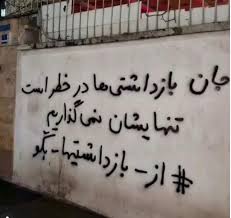 جان بازداشتی‌ها در خطر است
تنهایشان نمی‌گذاریم
#از-بازداشتیها-بگو